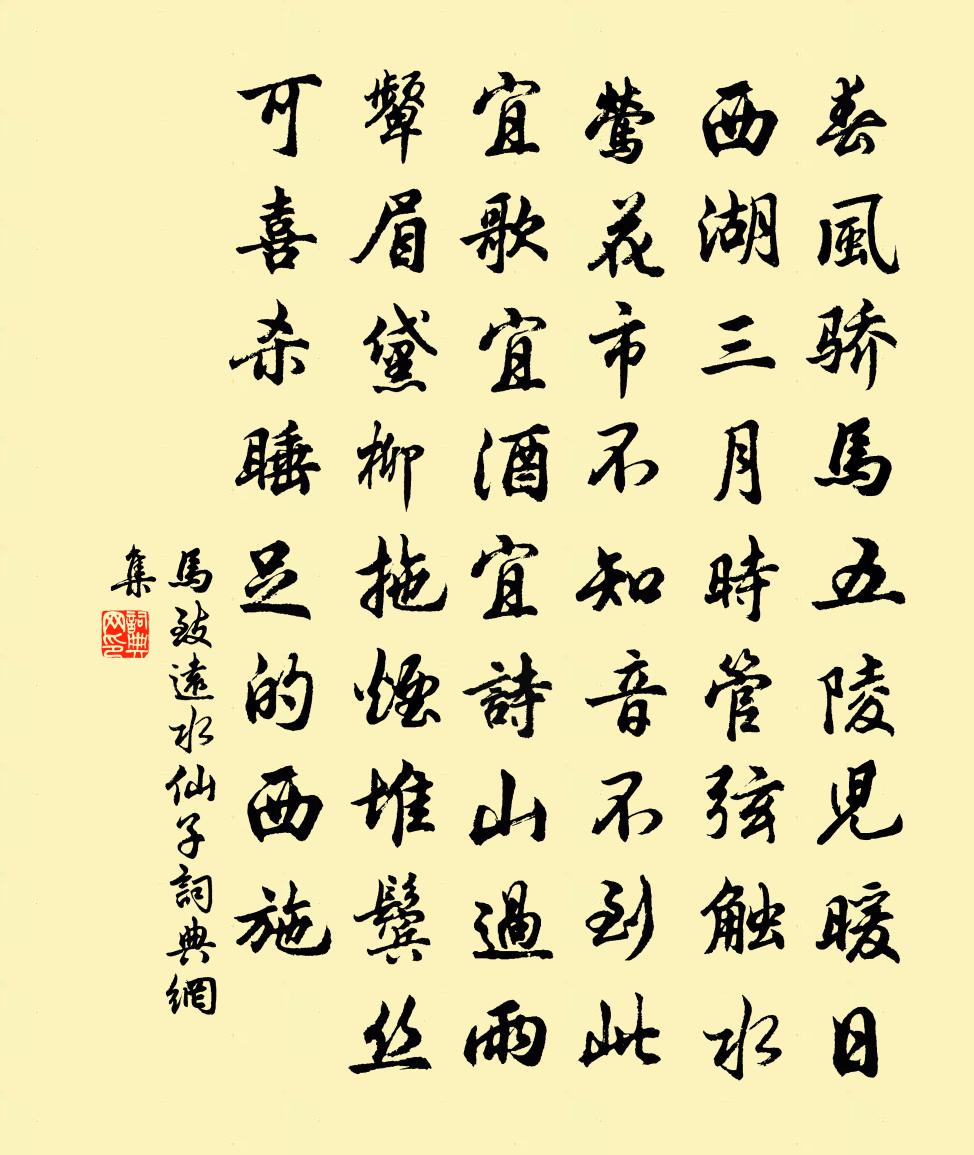 春風骄馬五陵児暖日
西湖三月時管弦触水
莺花市不知音不到此
宜歌宜酒宜詩山過雨
颦眉黛柳拖煙堆鬓丝
可喜杀睡足的西施
馬致遠水仙子詞典網
集
詞典
网印